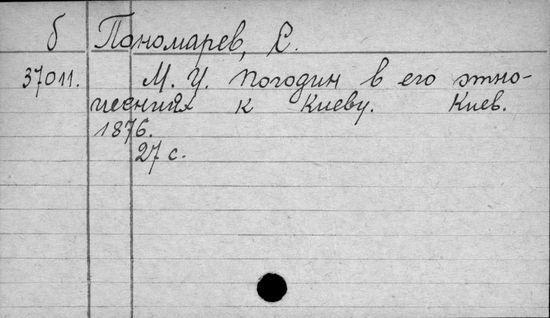 б Пономарев, С.
37011. М. У. Погодин в его отно-
шениях к Киеву. Киев.
1876.
27 с.